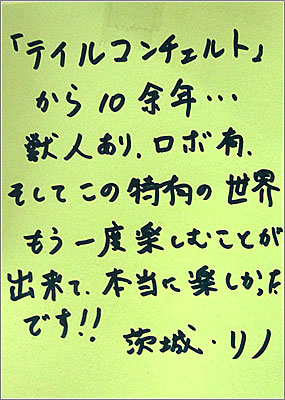 「テイルコンチェルト」
から10余年…
獣人あり、ロボ有、
そしてこの特有の世界
もう一度楽しむことが
出来て、本当に楽しかった
です!!
茨城・リノ